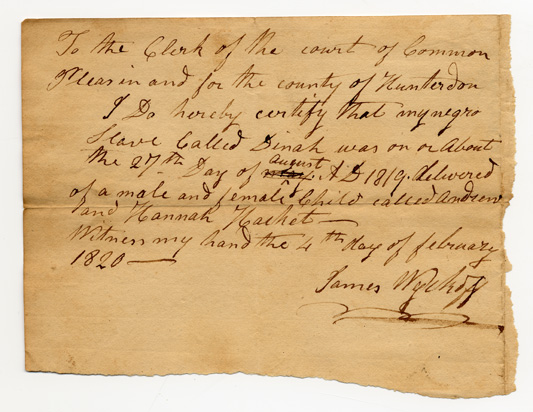 To the Clerk of the court of Common
Pleas in and for the county of Hunterdon
I Do hereby certify that my negro
Slave Called Dinah was on or About
the 27th Day of august A D 1819. delivered
of a male and female Child called Andrew
and Hannah Hacket
Witness my hand the 4th day of february
1820
James Wyckoff